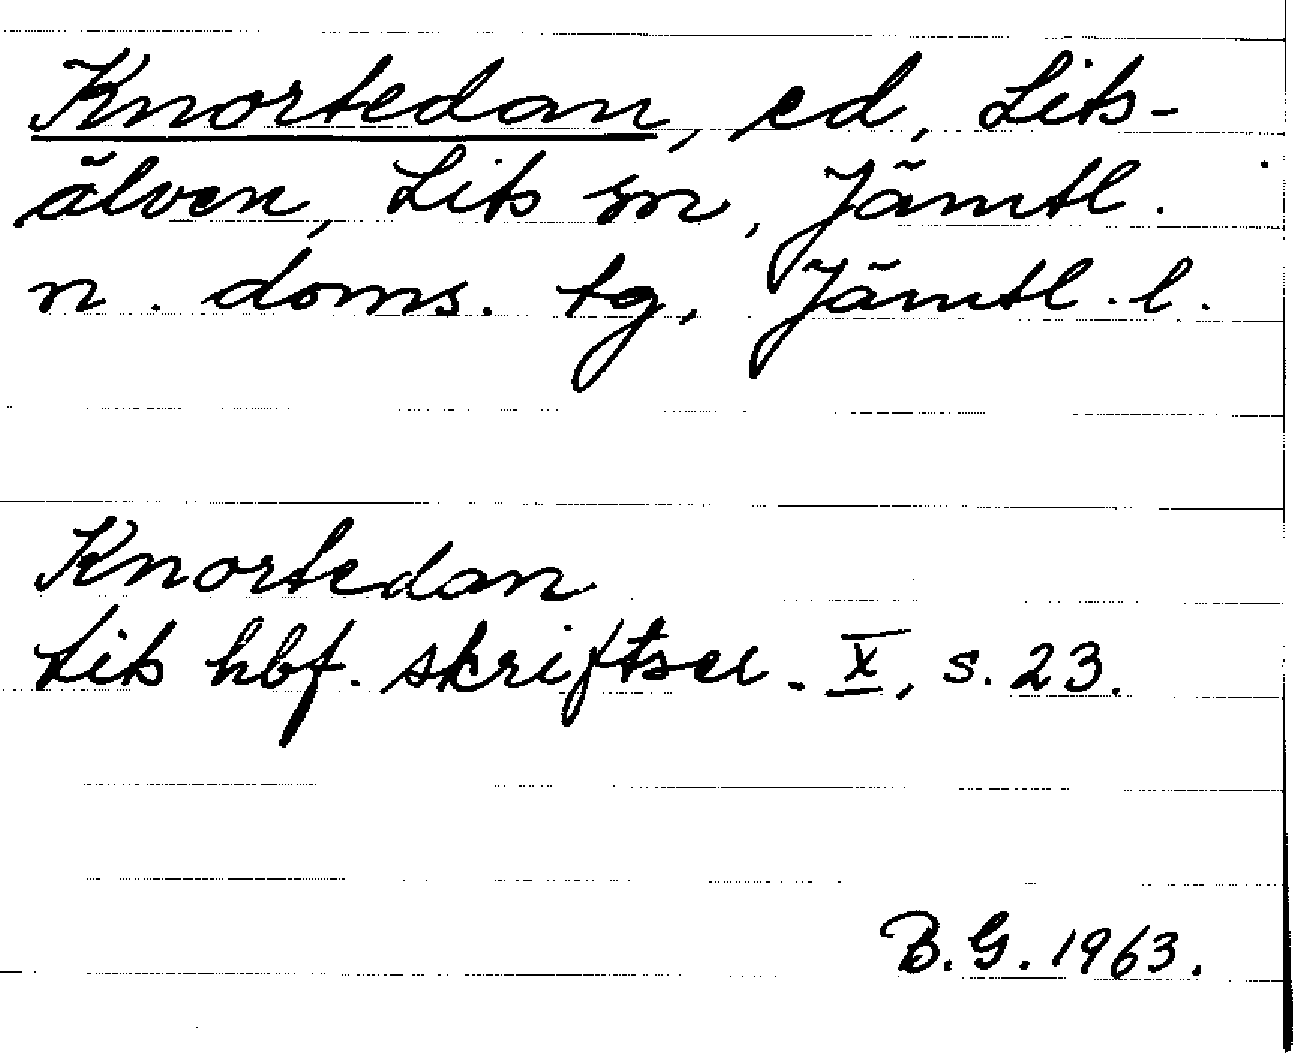 Knortedan, ed, Lits-
älven, Lits sn, Jämtl.
n. doms. tg, Jämtl. l.
Knortedan
Lits hbf. skriftser. X, s. 23.
B.G. 1963.